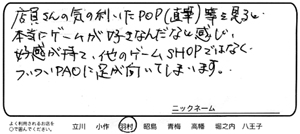 店員さんの気の利いたPOP(直筆)等を見ると
本当にゲームが好きなんだなと感じ、
好感が持て、他のゲームSHOPではなく
ついついPAOに足が向いてしまいます。
ニックネーム
よく利用されるお店を
○で囲んでください。
立川 小作 羽村 昭島 青梅 高幡 堀之内 八王子